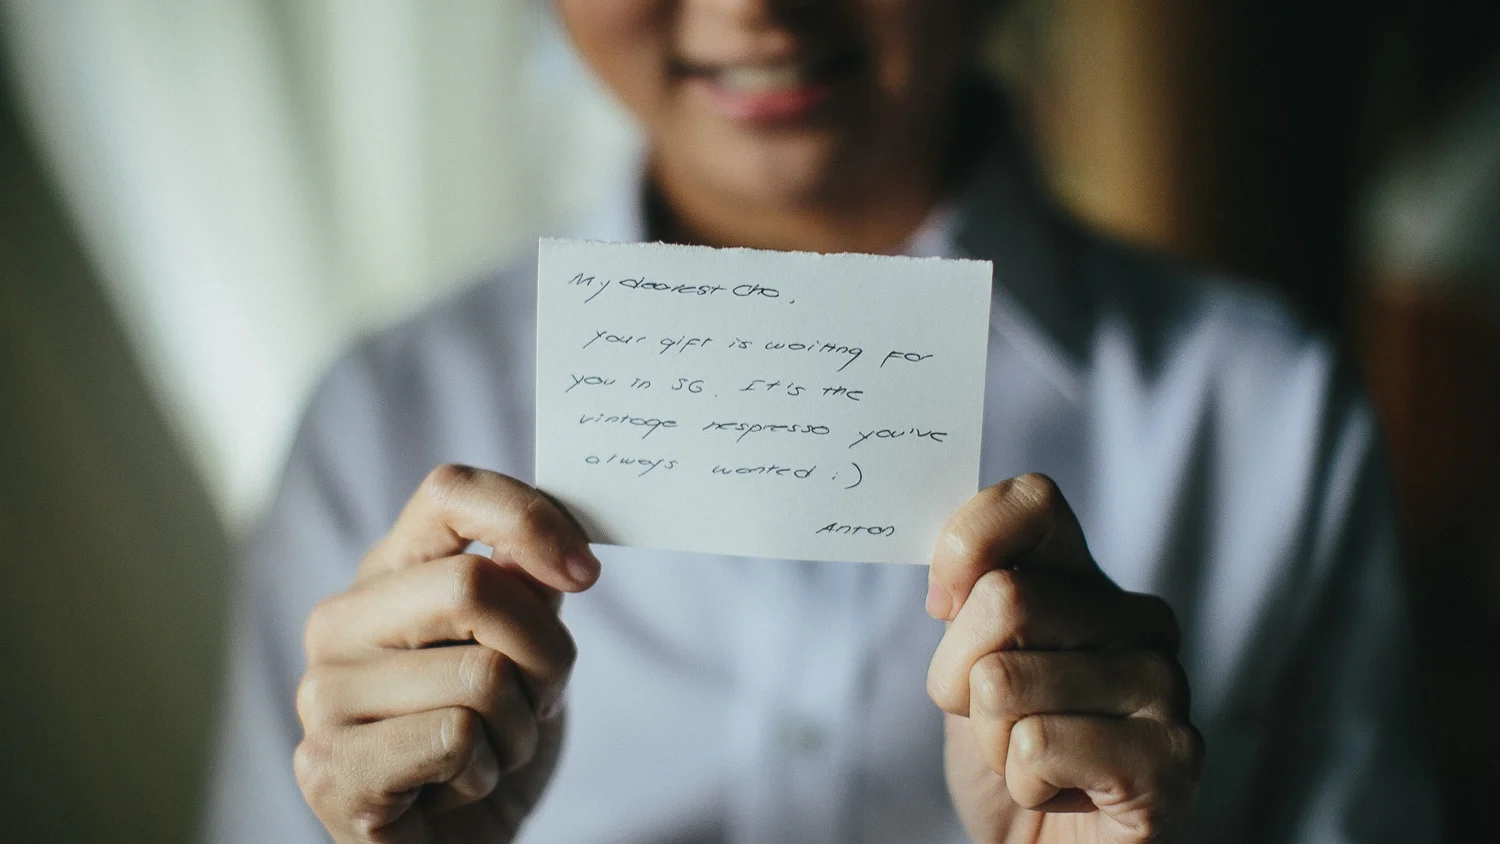 My dearest Cho,
Your gift is waiting for
you in SG. It's the
vintage nespresso you've
always wanted :)
Anton